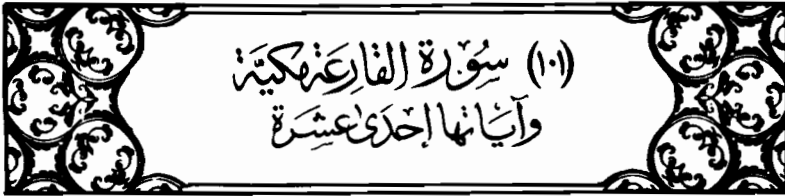 (١٠١) سُوْرَةُ القَارِعَة مَكِيَّة
وَآيَاتُهَا إِحْدَىٰ عَشَرَة